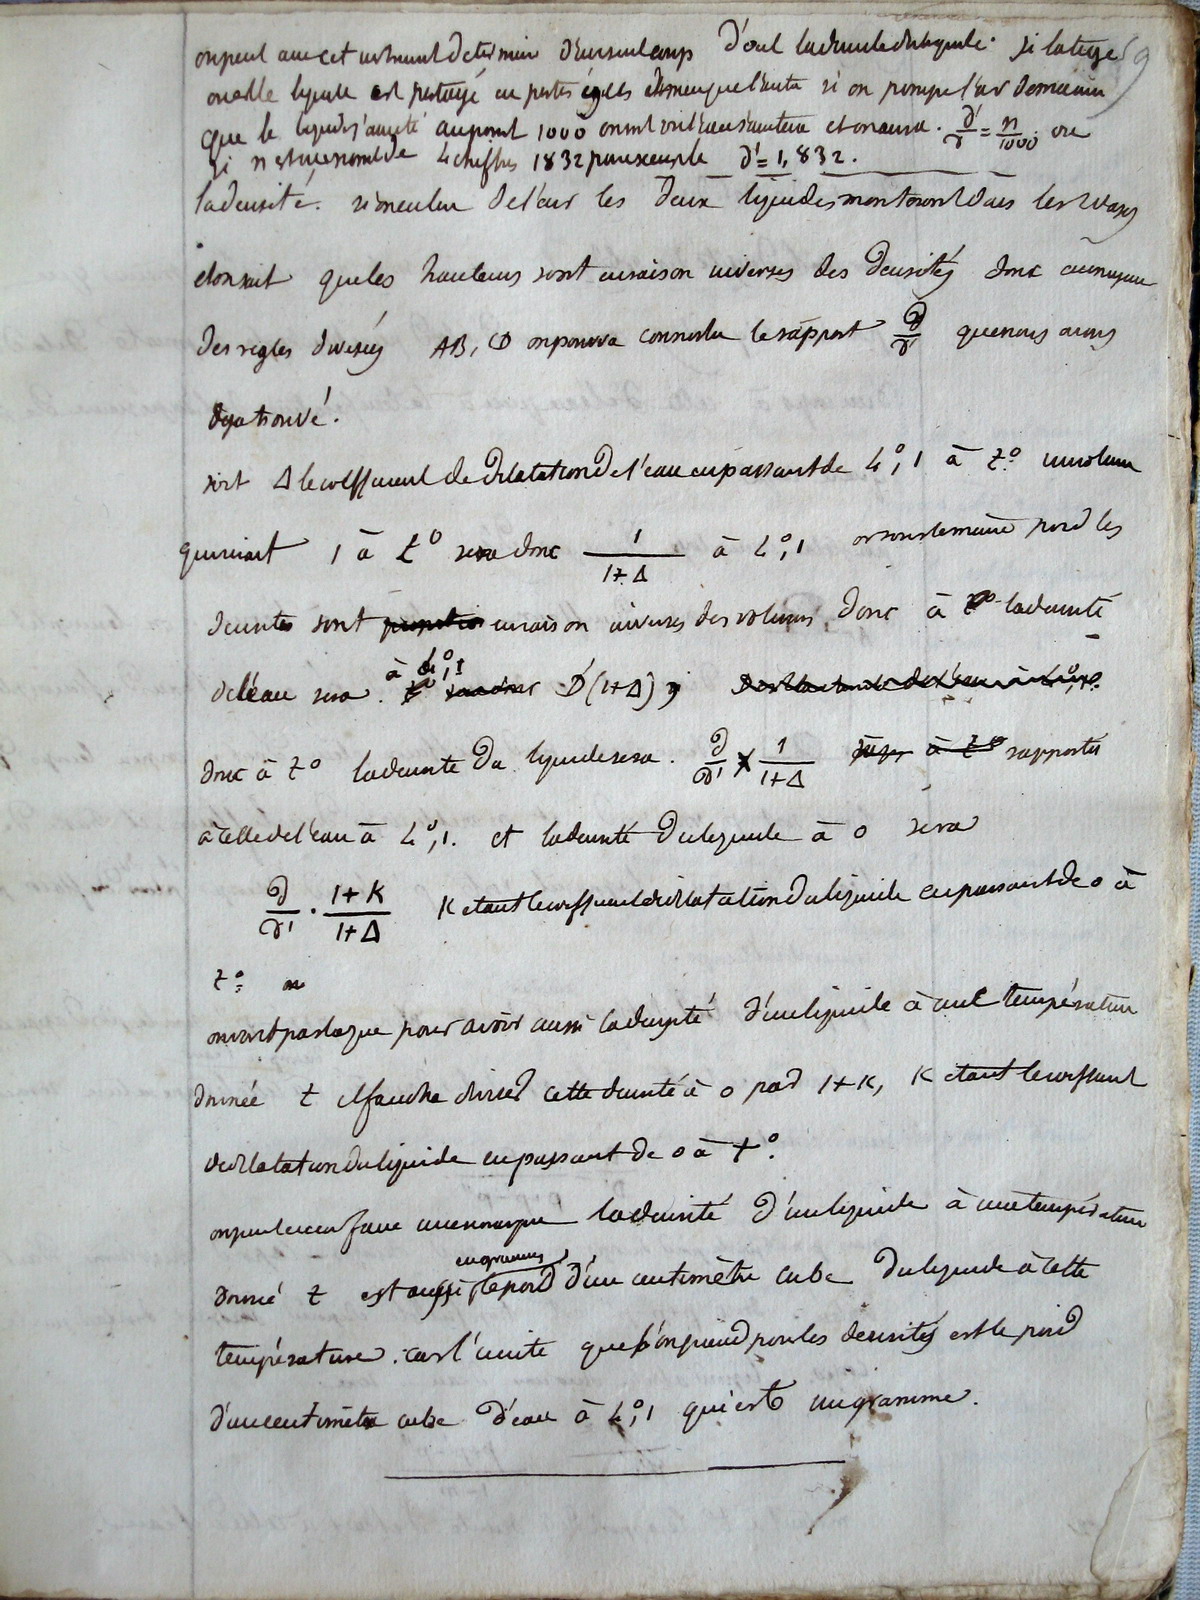 on peut avec cet instrument determiner d'un seul coup d'oeil la densité du liquide. si la tige 59
ou est le liquide est partagé en parties égales de meme que l'autre si on pompe l'air de maniere
que le liquide s'arrete au point 1000 et on aura. d'/γ = n/1000 ou
si n est un nombre de 4 chiffres 1832 par exemple d' = 1,832.
la densité. si on enleve de l'air les deux liquides monteront dans les vases
et on sait que les hauteurs sont en raison inverses des densités donc au moyen
des regles divisées AB, CD on pourra connoitre le rapport d/d' que nous avons
deja trouvé.
soit Δ le coefficient de dilatation de l'eau en passant de 4°,1 à t° un volume
qui vaut 1 à t° sera donc 1/1+Δ à 4°,1 or sous le meme poid les
densités sont en raison inverses des volumes donc à t° la densité
à 4°,1
de l'eau sera. D'(1+Δ)
donc à t° la densité du liquide sera. d/d' × 1/1+Δ à t° rapportée
à celle de l'eau à 4°,1. et la densité du liquide à 0 sera
d/d' . 1+K/1+Δ K etant le coefficient de dilatation du liquide en passant de 0 à
t°.
on voit par la que pour avoir aussi la densité d'un liquide à une température
donnée t il faudra diviser cette densité à 0 par 1+K, K etant le coefficient
de dilatation du liquide en passant de 0 à t°.
on peut encore faire une remarque la densité d'un liquide à une température
en grammes
donné t est aussi le poid d'un centimètre cube du liquide à cette
température. car l'unité que l'on prend pour les densités est le poid
d'un centimètre cube d'eau à 4°,1 qui est un gramme.